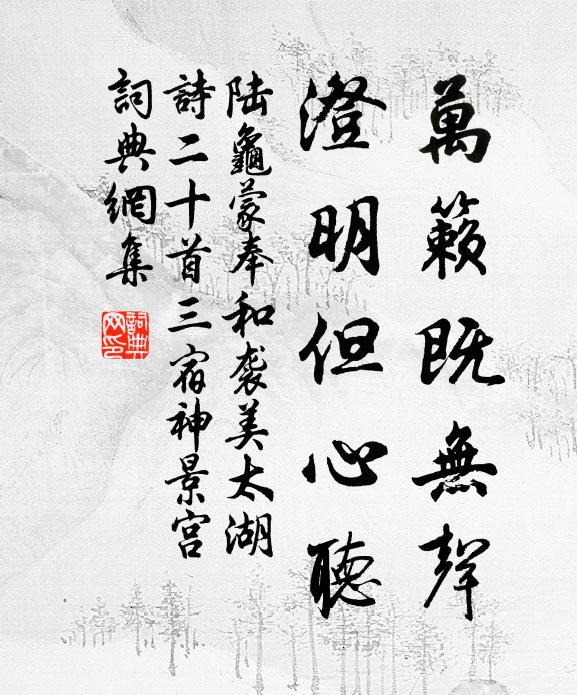 萬籟既無聲
澄明但心聽
陆龜蒙奉和袭美太湖
詩二十首三宿神景宫
詞典網集
詞典
网印